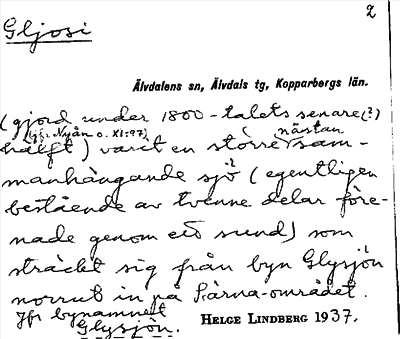 2
Gljosi
Älvdalens sn, Älvdals tg, Kopparbergs län.
(gjord under 1800-talets senare (?)
(jfr. Nyån o. XI:97) nästan
hälft) varit en större sam-
manhängande sjö (egentligen
bestående av tvenne delar före-
nade genom ett sund) som
sträckt sig från byn Glysjön
norrut in på Särna-området.
Jfr bynamnet
Glysjön.
HELGE LINDBERG 1937.